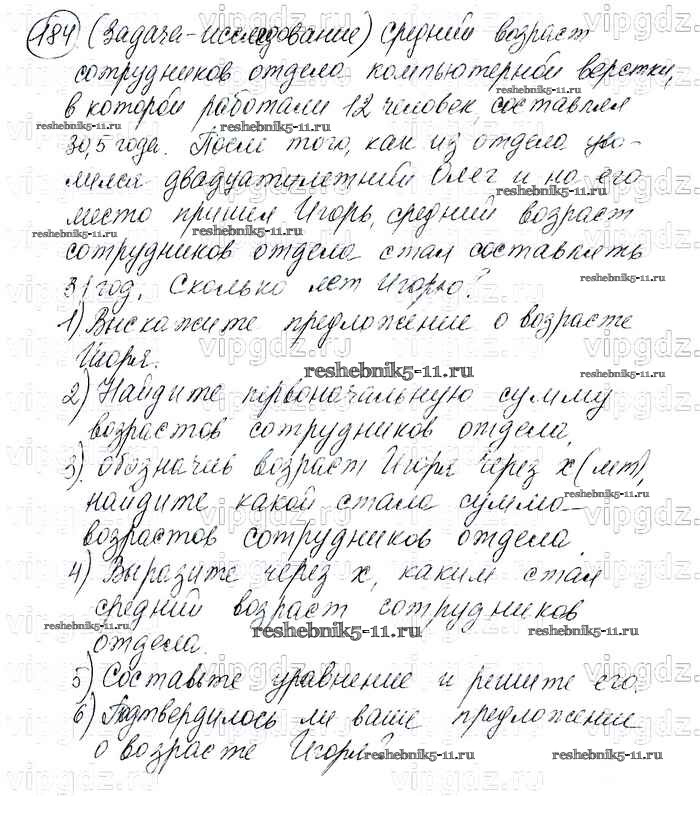 184 (Задача-исследование) Средний возраст
сотрудников отдела компьютерной верстки,
в которой работали 12 человек, составлял
30,5 года. После того, как из отдела уво-
лился двадцатилетний Олег и на его
место пришел Игорь, средний возраст
сотрудников отдела стал составлять
31 год. Сколько лет Игорю?
1) Выскажите предложение о возрасте
Игоря.
2) Найдите первоначальную сумму
возрастов сотрудников отдела.
3) Обозначив возраст Игоря через x (лет),
найдите какой стала сумма
возрастов сотрудников отдела.
4) Выразите через x, каким стал
средний возраст сотрудников
отдела.
5) Составьте уравнение и решите его.
6) Подтвердилось ли ваше предложение
о возрасте Игоря?
reshebnik5-11.ru
vipgdz.com